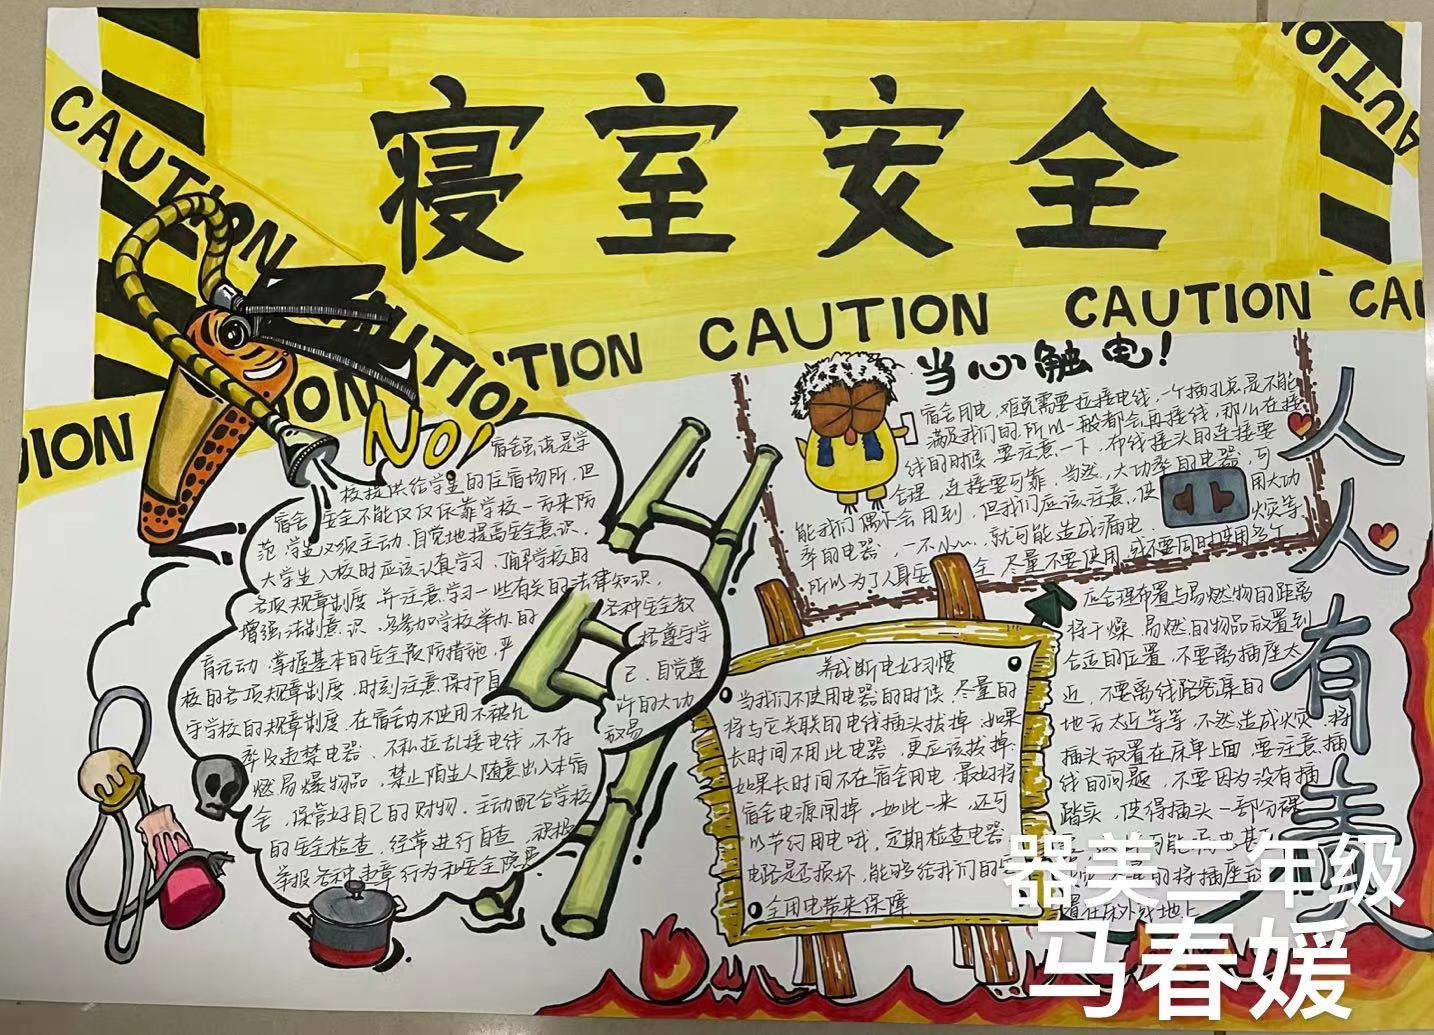 寝室安全
CAUTION
CAUTION
CAUTION
CAUTION
NO!
当心触电!
人人有责
宿舍虽说是学
校提供给学生的住宿场所,但
宿舍安全不能仅仅依靠学校一方来防
范,学生必须主动、自觉地提高安全意识。
大学生入校时应该认真学习、了解学校的
各项规章制度,并注意学习一些有关的法律知识,
增强法制意识,多参加学校举办的各种安全教
育活动,掌握基本的安全预防措施,严格遵守学
校的各项规章制度,时刻注意保护自己,自觉遵
守学校的规章制度,在宿舍内不使用不被允许的大功
率及违禁电器,不私拉乱接电线,不存放易
燃易爆物品,禁止陌生人随意出入本宿
舍,保管好自己的财物,主动配合学校
的安全检查,经常进行自查,积极
举报各种违章行为和安全隐患
宿舍用电,难免需要拉接电线,一个插孔总是不能
满足我们的,所以一般都会再接线,那么在接
线的时候要注意一下,布线接头的连接要
合理,连接要可靠,当然,大功率的电器,可
能我们偶尔会用到,但我们应该注意,使用大功
率的电器,一不小心,就可能造成漏电,火灾等,
所以为了人身安全,尽量不要使用,或不要同时使用多个
养成断电好习惯
当我们不使用电器的时候,尽量的
将与它关联的电线插头拔掉,如果
长时间不用此电器,更应该拔掉,
如果长时间不在宿舍用电,最好将
宿舍电源闸掉,如此一来,还可
以节约用电哦,定期检查电器
电路是否损坏,能够给我们的
全用电带来保障
应合理布置与易燃物的距离
将干燥、易燃的物品放置到
合适的位置,不要离插座太
近,不要离线路密集的
地方太近等等,不然造成火灾,将
插头放置在床单上面,要注意插
线的问题,不要因为没有插
踏实,使得插头一部分裸
的将插座
置在床外或地上
器美二年级
马春媛